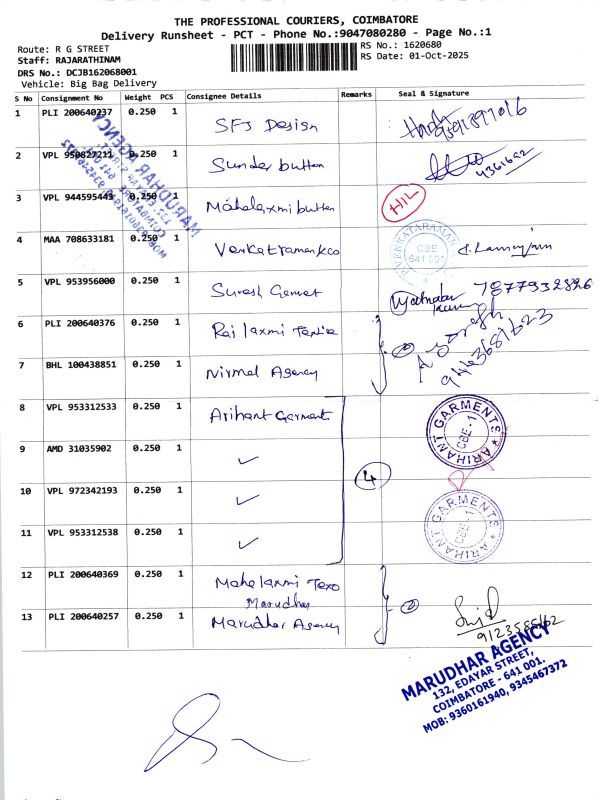 THE PROFESSIONAL COURIERS, COIMBATORE
Delivery Runsheet - PCT - Phone No.:9047080280 - Page No.:1
Route: R G STREET
RS No.: 1620680
Staff: RAJARATHINAM
RS Date: 01-Oct-2025
DRS No.: DCJB162068001
Vehicle: Big Bag Delivery
S No Consignment No Weight PCS Consignee Details Remarks Seal & Signature
1 PLI 200640237 0.250 1 SFJ Design
2 VPL 950827211 0.250 1 Sunder button 4361692
3 VPL 944595443 0.250 1 Mahalaxmi button HIL
4 MAA 708633181 0.250 1 Venkatraman & co VENKATARAMAN CBE 641 001
5 VPL 953956000 0.250 1 Suresh Garmet 7877932826
6 PLI 200640376 0.250 1 Raj laxmi Textile
7 BHL 100438851 0.250 1 Nirmal Agency 2 9443681623
8 VPL 953312533 0.250 1 Arihant Garment ARIHANT GARMENTS CBE-1
9 AMD 31035902 0.250 1 ✓
4
10 VPL 972342193 0.250 1 ✓
11 VPL 953312538 0.250 1 ✓ ARIHANT GARMENTS CBE-1
12 PLI 200640369 0.250 1 Mahalaxmi Texo
Marudhar 2
13 PLI 200640257 0.250 1 Marudhar Agency
MARUDHAR AGENCY
132, EDAYAR STREET,
COIMBATORE - 641 001.
MOB: 9360161940, 9345467372